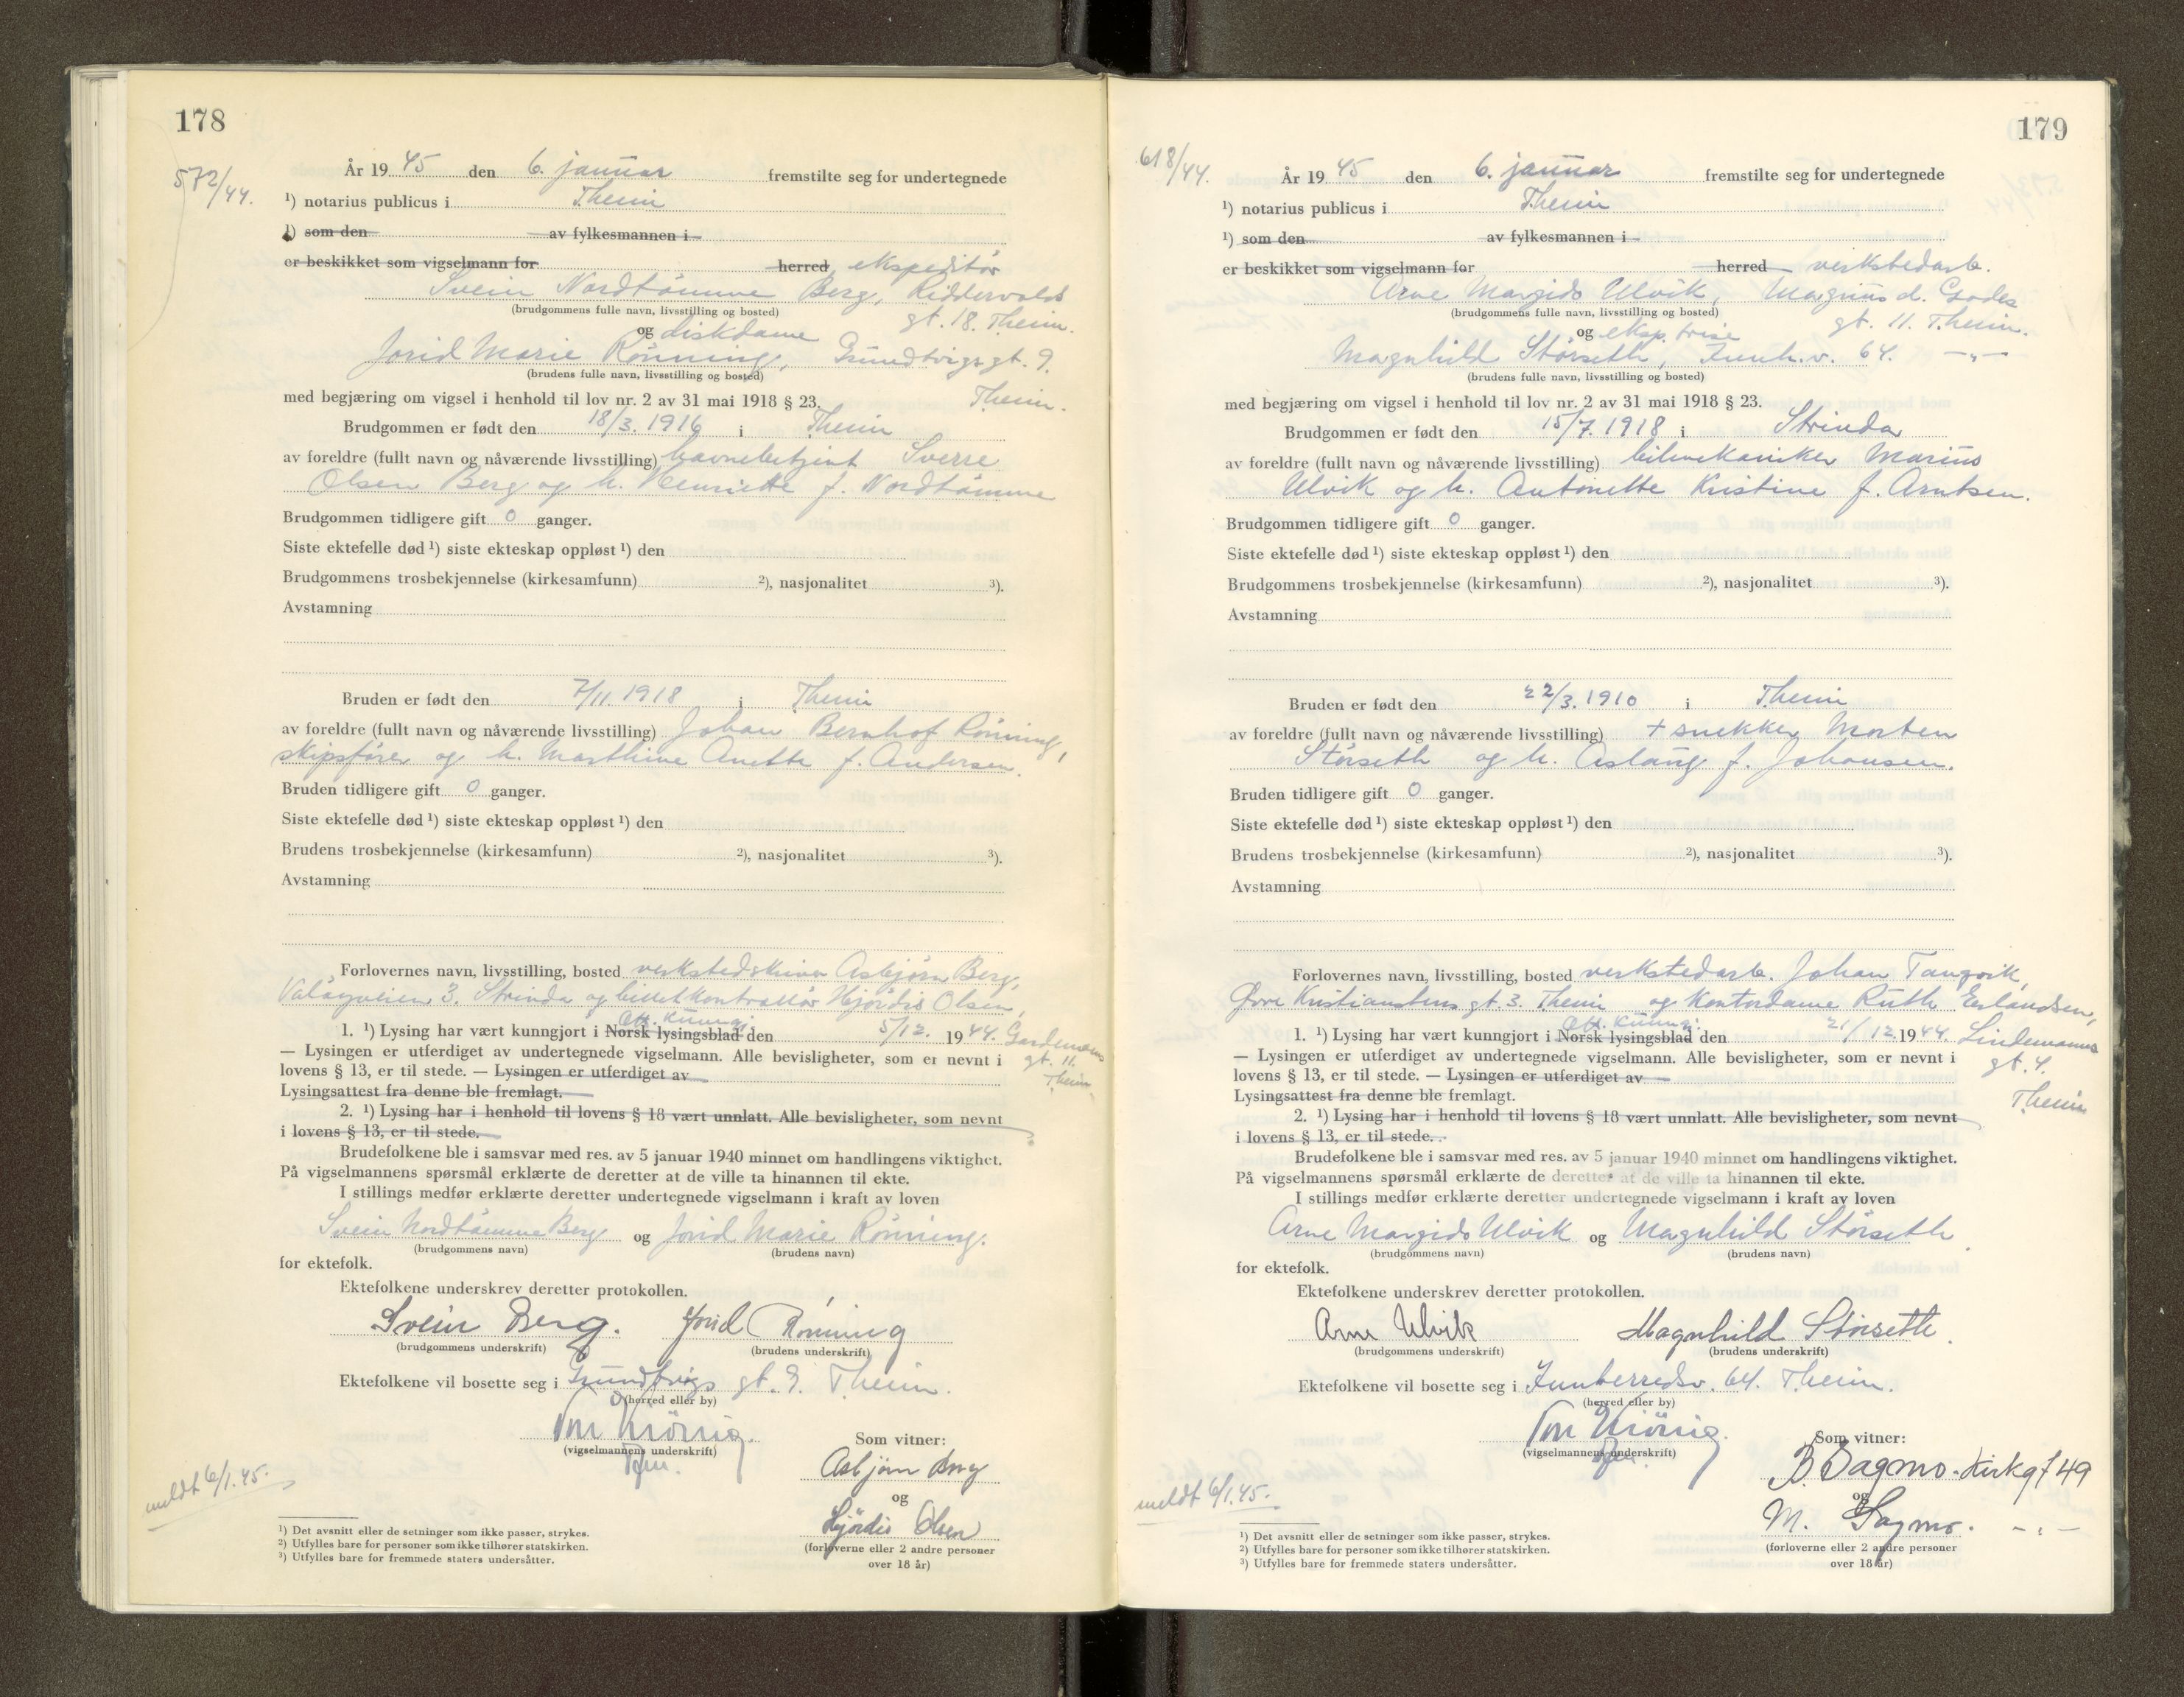 178
572/44.
År 1945 den 6. januar fremstilte seg for undertegnede
¹) notarius publicus i Theim
¹) som den av fylkesmannen i
er beskikket som vigselmann for herred ekspeditør
Svein Nordtømme Berg, Riddervolds
(brudgommens fulle navn, livsstilling og bosted) gt. 18. Theim.
og diskdame
Jorid Marie Rønning, Grundtvigsgt. 9.
(brudens fulle navn, livsstilling og bosted)
med begjæring om vigsel i henhold til lov nr. 2 av 31 mai 1918 § 23. Theim.
Brudgommen er født den 18/3. 1916 i Theim
av foreldre (fullt navn og nåværende livsstilling) havnebetjent Sverre
Olsen Berg og h. Henriette f. Nordtømme
Brudgommen tidligere gift 0 ganger.
Siste ektefelle død ¹) siste ekteskap oppløst ¹) den
Brudgommens trosbekjennelse (kirkesamfunn) ²), nasjonalitet ³).
Avstamning
Bruden er født den 7/11. 1918 i Theim
av foreldre (fullt navn og nåværende livsstilling) Johan Bernhof Rønning,
skipsfører og h. Marthine Anette f. Andersen.
Bruden tidligere gift 0 ganger.
Siste ektefelle død ¹) siste ekteskap oppløst ¹) den
Brudens trosbekjennelse (kirkesamfunn) ²), nasjonalitet ³).
Avstamning
Forlovernes navn, livsstilling, bosted verkstedskriver Asbjørn Berg,
3. Strinda og billettkontrollør Hjørdis Olsen,
Off. kunngj.
1. ¹) Lysing har vært kunngjort i Norsk lysingsblad den 5/12. 1944.
— Lysingen er utferdiget av undertegnede vigselmann. Alle bevisligheter, som er nevnt i gt. 11.
lovens § 13, er til stede. — Lysingen er utferdiget av Theim
Lysingsattest fra denne ble fremlagt.
2. ¹) Lysing har i henhold til lovens § 18 vært unnlatt. Alle bevisligheter, som nevnt
i lovens § 13, er til stede.
Brudefolkene ble i samsvar med res. av 5 januar 1940 minnet om handlingens viktighet.
På vigselmannens spørsmål erklærte de deretter at de ville ta hinannen til ekte.
I stillings medfør erklærte deretter undertegnede vigselmann i kraft av loven
Svein Nordtømme Berg og Jorid Marie Rønning.
(brudgommens navn) (brudens navn)
for ektefolk.
Ektefolkene underskrev deretter protokollen.
Svein Berg. Jorid Rönning
(brudgommens underskrift) (brudens underskrift)
Ektefolkene vil bosette seg i Grundtvigs gt. 9. Theim.
(herred eller by)
(vigselmannens underskrift) Som vitner:
Asbjørn Berg
meldt 6/1.45.
og
Hjördis Olsen
(forloverne eller 2 andre personer
over 18 år)
¹) Det avsnitt eller de setninger som ikke passer, strykes.
²) Utfylles bare for personer som ikke tilhører statskirken.
³) Utfylles bare for fremmede staters undersåtter.
179
618/44.
År 1945 den 6. januar fremstilte seg for undertegnede
¹) notarius publicus i Theim
¹) som den av fylkesmannen i
er beskikket som vigselmann for herred verkstedarb.
Arne Margido Ulvik, Magnus d. Godes
(brudgommens fulle navn, livsstilling og bosted) gt. 11. Theim.
og eksp.trise
Magnhild Störseth, Innh.v. 64. —"—
(brudens fulle navn, livsstilling og bosted)
med begjæring om vigsel i henhold til lov nr. 2 av 31 mai 1918 § 23.
Brudgommen er født den 15/7. 1918 i Strinda
av foreldre (fullt navn og nåværende livsstilling) bilmekaniker Marius
Ulvik og h. Antonette Kristine f. Arntsen.
Brudgommen tidligere gift 0 ganger.
Siste ektefelle død ¹) siste ekteskap oppløst ¹) den
Brudgommens trosbekjennelse (kirkesamfunn) ²), nasjonalitet ³).
Avstamning
Bruden er født den 22/3. 1910 i Theim
av foreldre (fullt navn og nåværende livsstilling) + snekker Morten
Störseth og h. Aslaug f. Johansen.
Bruden tidligere gift 0 ganger.
Siste ektefelle død ¹) siste ekteskap oppløst ¹) den
Brudens trosbekjennelse (kirkesamfunn) ²), nasjonalitet ³).
Avstamning
Forlovernes navn, livsstilling, bosted verkstedarb. Johan Tangvik,
Øvre Kristianstens gt. 3. Theim og kontordame Ruth Erlandsen,
Off. kunngj.
1. ¹) Lysing har vært kunngjort i Norsk lysingsblad den 21/12. 1944. Lindemanns
— Lysingen er utferdiget av undertegnede vigselmann. Alle bevisligheter, som er nevnt i gt. 4.
lovens § 13, er til stede. — Lysingen er utferdiget av
Lysingsattest fra denne ble fremlagt. Theim
2. ¹) Lysing har i henhold til lovens § 18 vært unnlatt. Alle bevisligheter, som nevnt
i lovens § 13, er til stede.
Brudefolkene ble i samsvar med res. av 5 januar 1940 minnet om handlingens viktighet.
På vigselmannens spørsmål erklærte de deretter at de ville ta hinannen til ekte.
I stillings medfør erklærte deretter undertegnede vigselmann i kraft av loven
Arne Margido Ulvik og Magnhild Störseth
(brudgommens navn) (brudens navn)
for ektefolk.
Ektefolkene underskrev deretter protokollen.
Arne Ulvik Magnhild Störseth.
(brudgommens underskrift) (brudens underskrift)
Ektefolkene vil bosette seg i Innherredsv. 64. Theim.
(herred eller by)
(vigselmannens underskrift) Som vitner:
B. Sagmo. Kirkegt 49
meldt 6/1.45.
og
M. Sagmo. —"—
(forloverne eller 2 andre personer
over 18 år)
¹) Det avsnitt eller de setninger som ikke passer, strykes.
²) Utfylles bare for personer som ikke tilhører statskirken.
³) Utfylles bare for fremmede staters undersåtter.